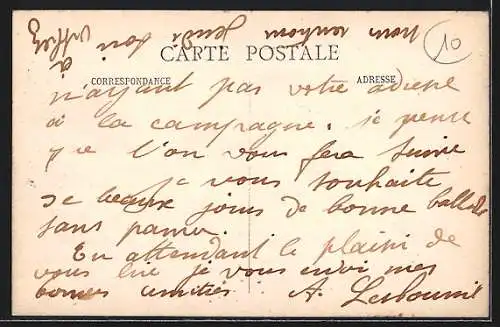 nous rentrons jeudi soir
à
10
CARTE POSTALE
CORRESPONDANCE
ADRESSE
n'ayant pas votre adresse
à la campagne. je pense
que l'on vous fera suivre
je vous souhaite
de beaux jours de bonne ballade
sans panne.
En attendant le plaisir de
vous lire je vous envoi mes
bonnes amitiés A.